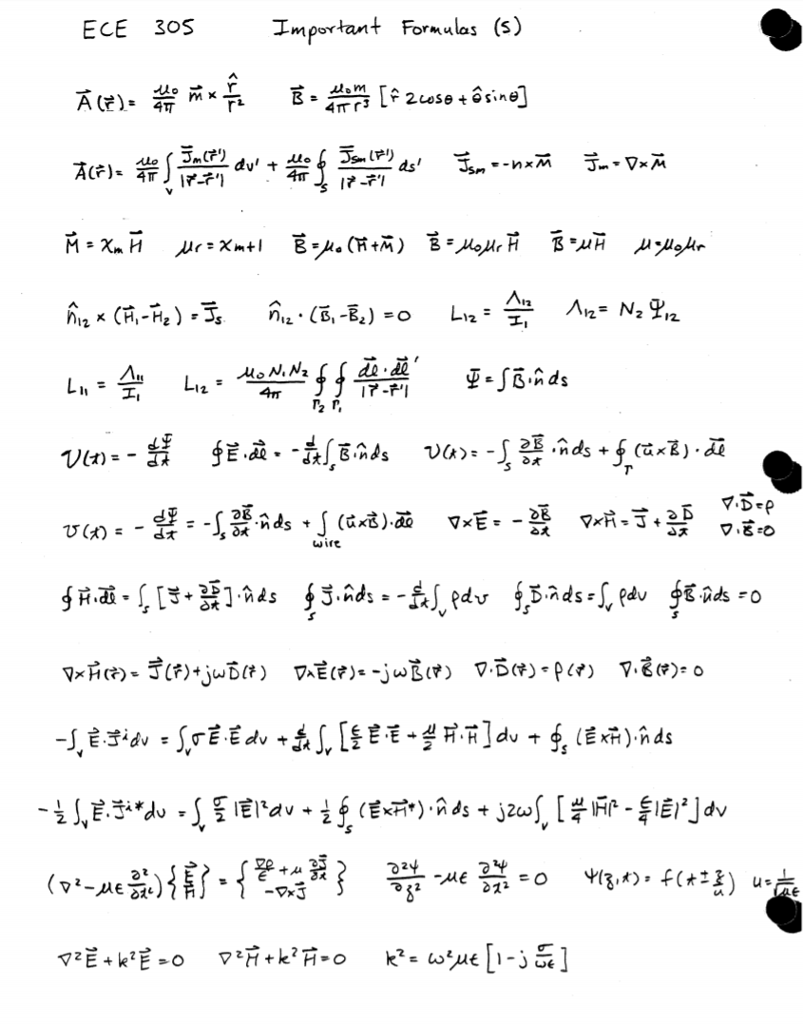 ECE 305 Important Formulas (5)
$\vec{A}(\vec{r}) = \frac{\mu_0}{4\pi} \vec{m} \times \frac{\hat{r}}{r^2}$ $\vec{B} = \frac{\mu_0 m}{4\pi r^3} [\hat{r} 2\cos\theta + \hat{\theta} \sin\theta]$
$\vec{A}(\vec{r}) = \frac{\mu_0}{4\pi} \int_v \frac{\vec{J}_m(\vec{r}')}{|\vec{r}-\vec{r}'|} dv' + \frac{\mu_0}{4\pi} \oint_s \frac{\vec{J}_{sm}(\vec{r}')}{|\vec{r}-\vec{r}'|} ds'$ $\vec{J}_{sm} = -n \times \vec{M}$ $\vec{J}_m = \nabla \times \vec{M}$
$\vec{M} = \chi_m \vec{H}$ $\mu_r = \chi_m + 1$ $\vec{B} = \mu_0 (\vec{H} + \vec{M})$ $\vec{B} = \mu_0 \mu_r \vec{H}$ $\vec{B} = \mu \vec{H}$ $\mu = \mu_0 \mu_r$
$\hat{n}_{12} \times (\vec{H}_1 - \vec{H}_2) = \vec{J}_s$ $\hat{n}_{12} \cdot (\vec{B}_1 - \vec{B}_2) = 0$ $L_{12} = \frac{\Lambda_{12}}{I_1}$ $\Lambda_{12} = N_2 \Psi_{12}$
$L_{11} = \frac{\Lambda_{11}}{I_1}$ $L_{12} = \frac{\mu_0 N_1 N_2}{4\pi} \oint_{\Gamma_2} \oint_{\Gamma_1} \frac{\vec{dl} \cdot \vec{dl}'}{|\vec{r}-\vec{r}'|}$ $\Psi = \int \vec{B} \cdot \hat{n} ds$
$V(t) = -\frac{d\Psi}{dt}$ $\oint \vec{E} \cdot \vec{dl} = -\frac{d}{dt} \int_s \vec{B} \cdot \hat{n} ds$ $V(t) = -\int_s \frac{\partial \vec{B}}{\partial t} \cdot \hat{n} ds + \oint_\Gamma (\vec{u} \times \vec{B}) \cdot \vec{dl}$
$V(t) = -\frac{d\Psi}{dt} = -\int_s \frac{\partial \vec{B}}{\partial t} \cdot \hat{n} ds + \int_{wire} (\vec{u} \times \vec{B}) \cdot \vec{dl}$ $\nabla \times \vec{E} = -\frac{\partial \vec{B}}{\partial t}$ $\nabla \times \vec{H} = \vec{J} + \frac{\partial \vec{D}}{\partial t}$ $\nabla \cdot \vec{D} = \rho$ $\nabla \cdot \vec{B} = 0$
$\oint \vec{H} \cdot \vec{dl} = \int_s [\vec{J} + \frac{\partial \vec{D}}{\partial t}] \cdot \hat{n} ds$ $\oint_s \vec{J} \cdot \hat{n} ds = -\frac{d}{dt} \int_v \rho dv$ $\oint_s \vec{D} \cdot \hat{n} ds = \int_v \rho dv$ $\oint_s \vec{B} \cdot \hat{n} ds = 0$
$\nabla \times \vec{H}(\vec{r}) = \vec{J}(\vec{r}) + j\omega \vec{D}(\vec{r})$ $\nabla \times \vec{E}(\vec{r}) = -j\omega \vec{B}(\vec{r})$ $\nabla \cdot \vec{D}(\vec{r}) = \rho(\vec{r})$ $\nabla \cdot \vec{B}(\vec{r}) = 0$
$-\int_v \vec{E} \cdot \vec{J}^i dv = \int_v \sigma \vec{E} \cdot \vec{E} dv + \frac{d}{dt} \int_v [\frac{\epsilon}{2} \vec{E} \cdot \vec{E} + \frac{\mu}{2} \vec{H} \cdot \vec{H}] dv + \oint_s (\vec{E} \times \vec{H}) \cdot \hat{n} ds$
$-\frac{1}{2} \int_v \vec{E} \cdot \vec{J}^{i*} dv = \int_v \frac{\sigma}{2} |\vec{E}|^2 dv + \frac{1}{2} \oint_s (\vec{E} \times \vec{H}^*) \cdot \hat{n} ds + j2\omega \int_v [\frac{\mu}{4} |\vec{H}|^2 - \frac{\epsilon}{4} |\vec{E}|^2] dv$
$(\nabla^2 - \mu\epsilon \frac{\partial^2}{\partial t^2}) \{ \begin{matrix} \vec{E} \\ \vec{H} \end{matrix} \} = \{ \begin{matrix} \frac{\nabla\rho}{\epsilon} + \mu \frac{\partial \vec{J}}{\partial t} \\ -\nabla \times \vec{J} \end{matrix} \}$ $\frac{\partial^2 \psi}{\partial z^2} - \mu\epsilon \frac{\partial^2 \psi}{\partial t^2} = 0$ $\psi(z,t) = f(t \pm \frac{z}{u})$ $u = \frac{1}{\sqrt{\mu\epsilon}}$
$\nabla^2 \vec{E} + k^2 \vec{E} = 0$ $\nabla^2 \vec{H} + k^2 \vec{H} = 0$ $k^2 = \omega^2 \mu\epsilon [1 - j \frac{\sigma}{\omega\epsilon}]$